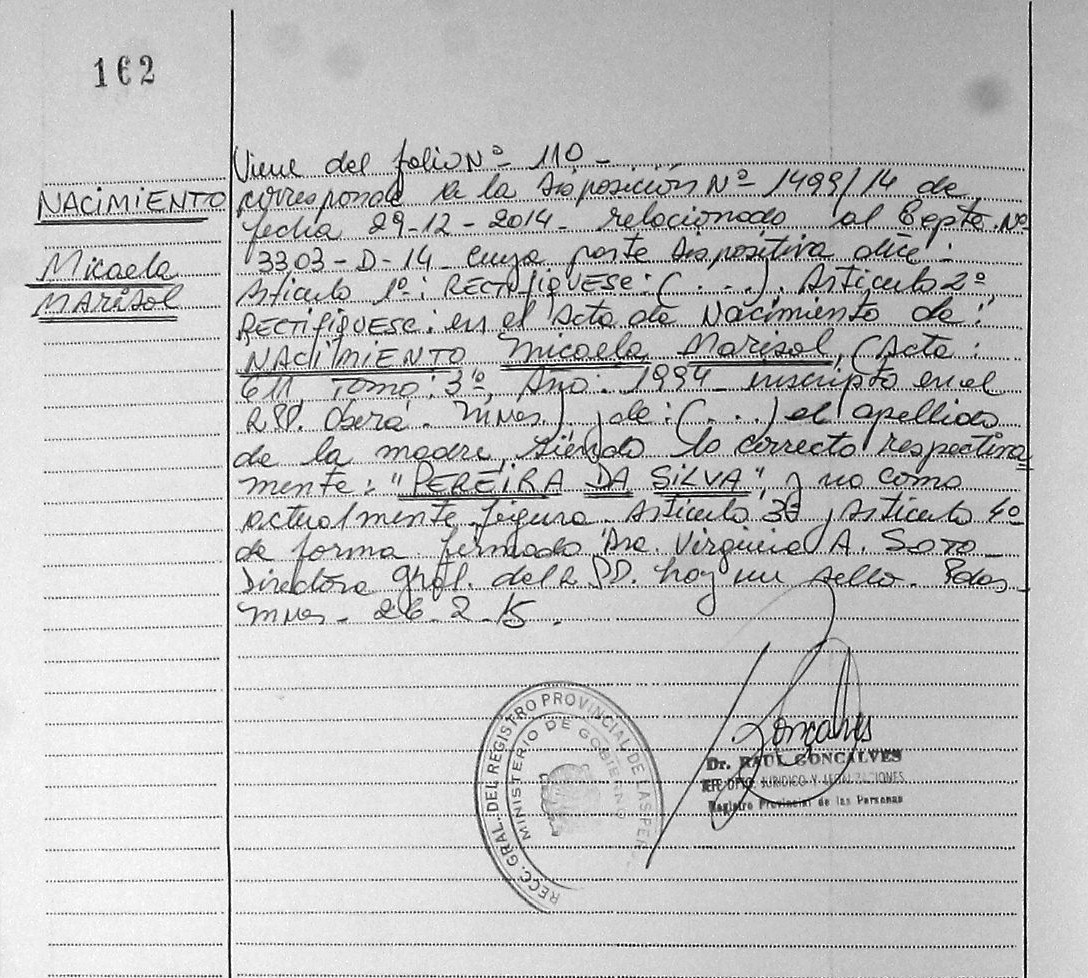 162
NACIMIENTO
Micaela
MARISOL
Viene del folio Nº 110 -
corresponde a la Disposición Nº 1499/14 de
fecha 29-12-2014 - relacionado al Expte. Nº
3303-D-14 cuya parte dispositiva dice:
Artículo 1º: RECTIFIQUESE: (...). Artículo 2º
RECTIFIQUESE: en el Acta de Nacimiento de:
NACIMIENTO Micaela Marisol, (Acta:
611. Tomo: 3º, Año: 1994 inscripto en el
R.PP. Oberá. Mnes), de: (...) el apellido
de la madre, siendo lo correcto respectiva=
mente: "PEREIRA DA SILVA" y no como
actualmente figura. Artículo 3º y Artículo 4º
de forma firmado Dra. Virginia A. SOTO -
Directora Gral. del R.PP. hay un sello. Pdas
Mnes - 26-2-15.
RECC. GRAL. DEL REGISTRO PROVINCIAL DE LAS PE
MINISTERIO DE GOBIERNO
Goncalves
Dr. RAUL GONCALVES
JEFE DPTO. JURIDICO Y LEGALIZACIONES
Registro Provincial de las Personas